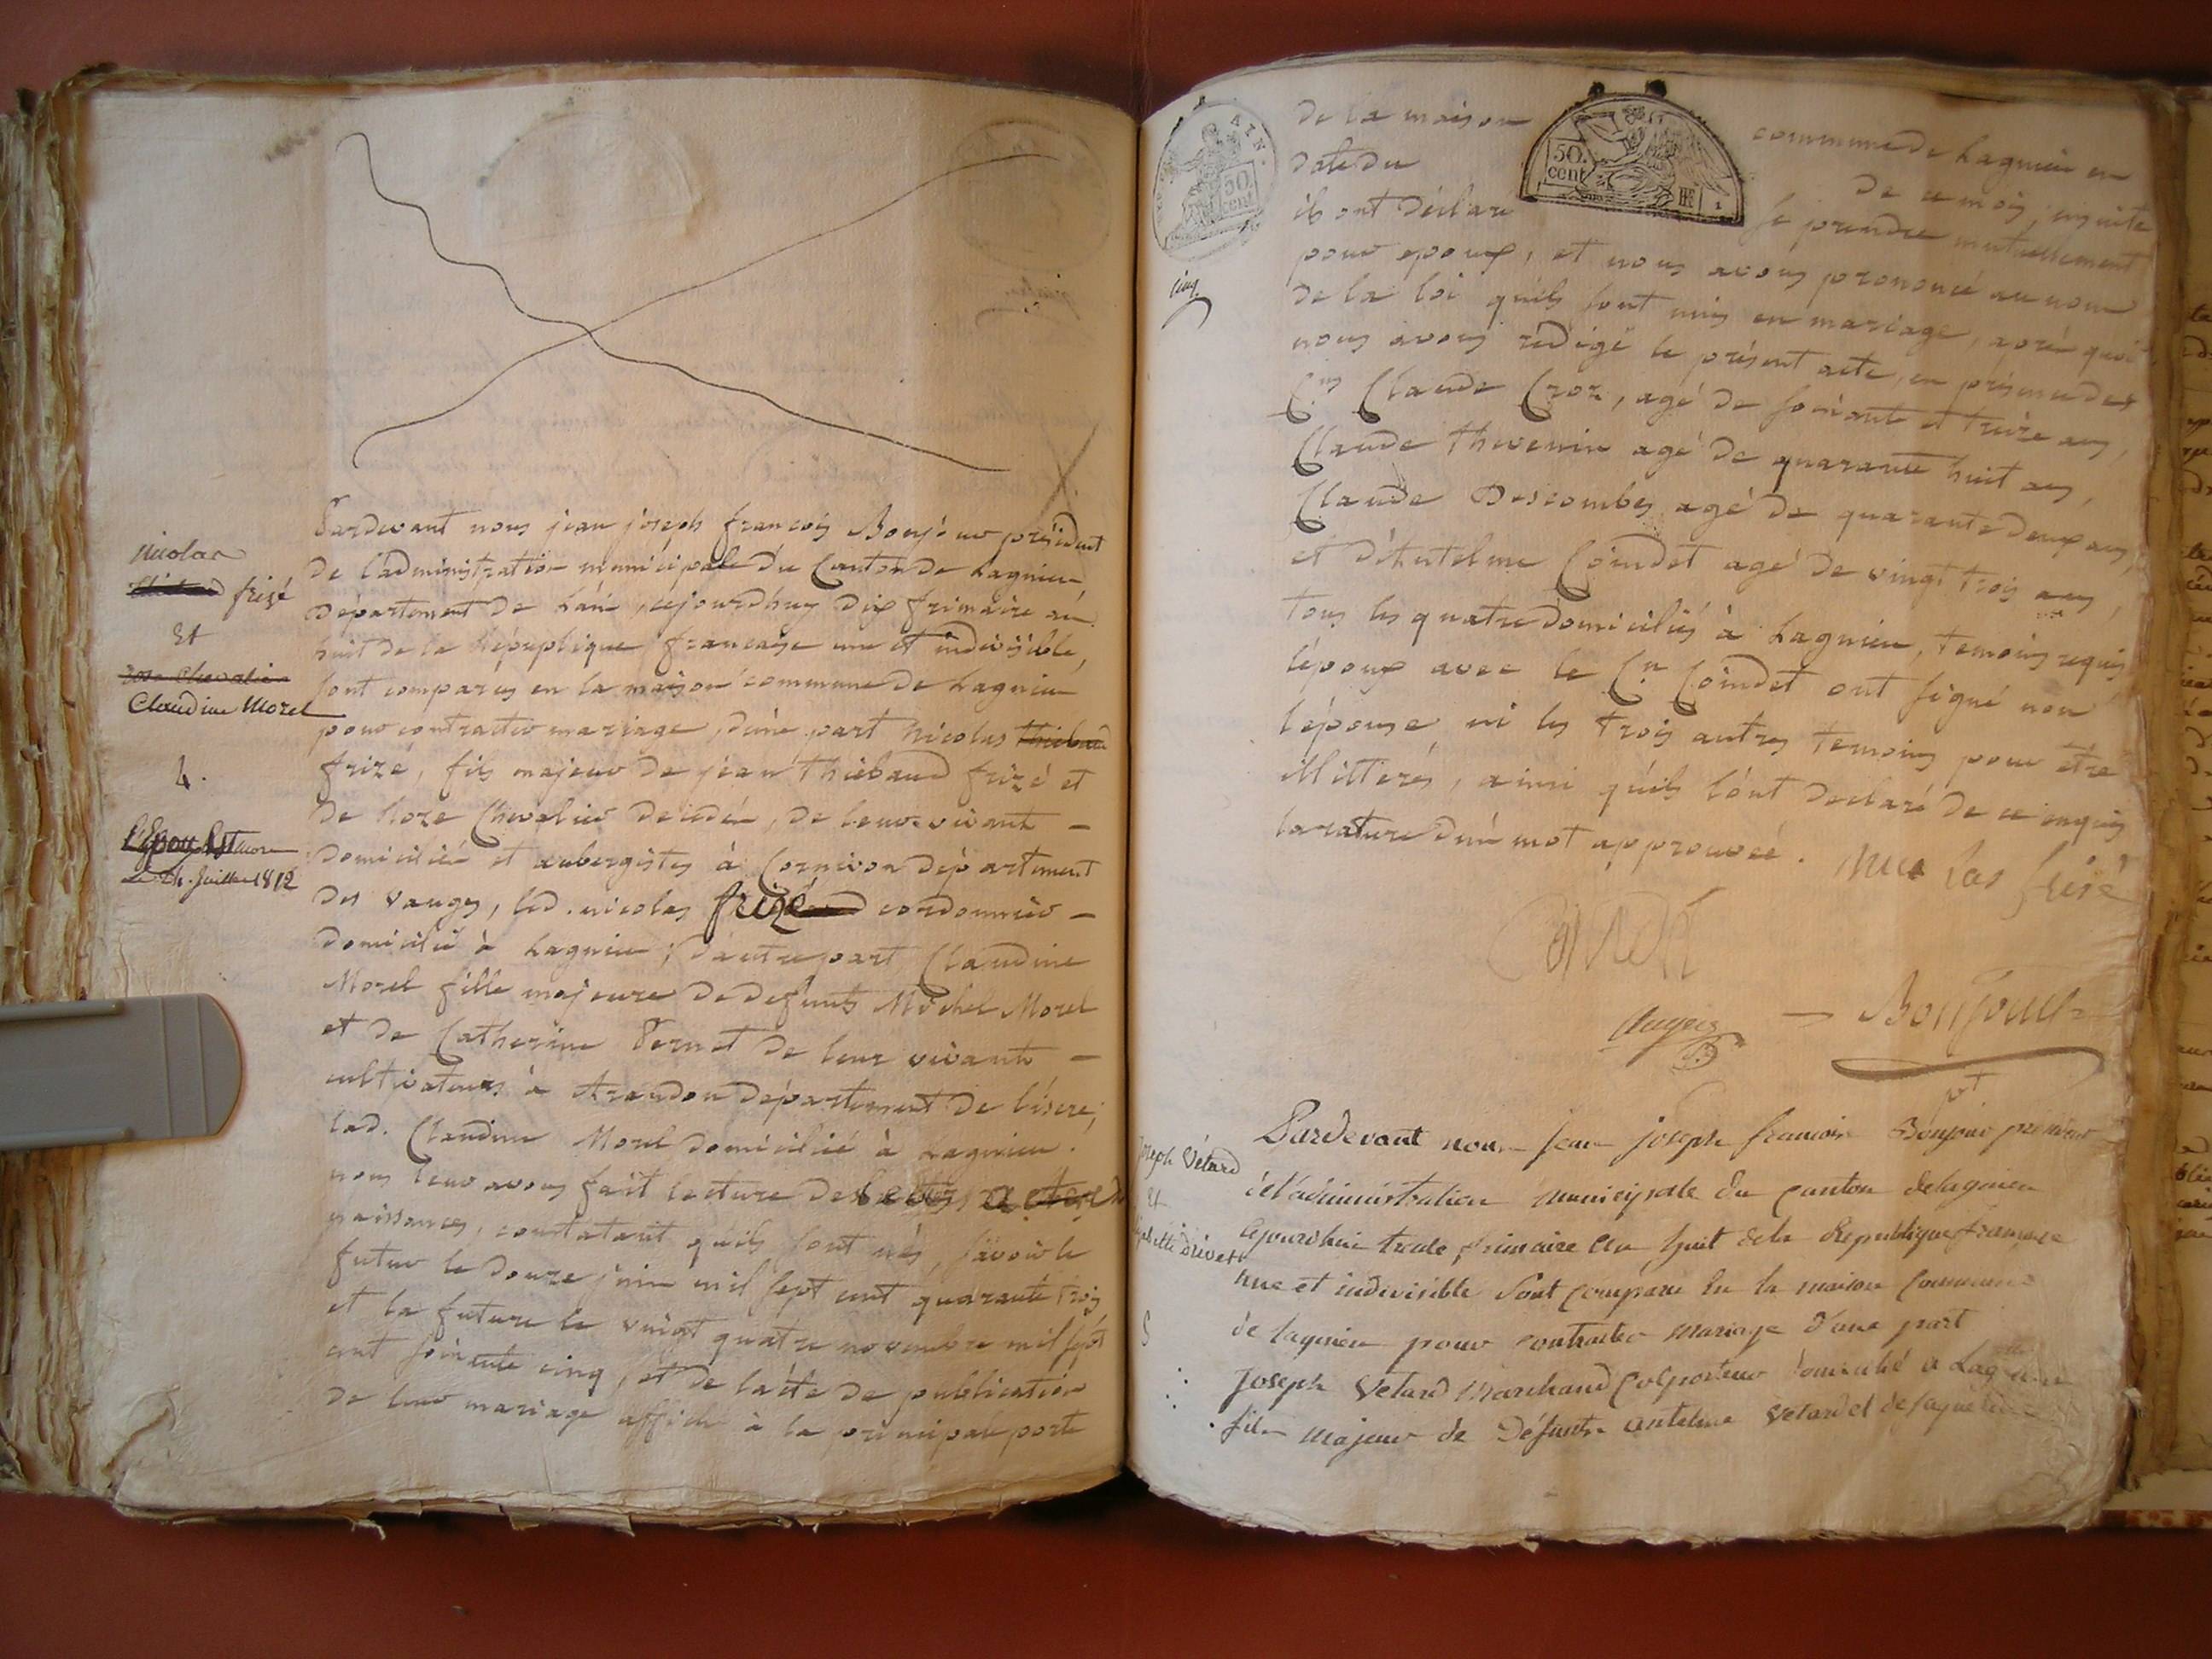 nicolas
frizé
Et
rose Chevalier
Claudine Morel
4.
l'Epoux Est mort
le 24. Juillet 1812
Pardevant nous jean joseph francois Bonjour président
de l'administration municipale du Canton de Lagnieu
département de Lain, cejourdhuy dix frimaire an
huit de la Répuplique francaise une et indivisible,
sont comparus en la maison commune de Lagnieu
pour contracter mariage, d'une part nicolas thiebaud
frizé, fils majeur de jean thiebaud frizé et
de Roze Chevalier de leur vivant –
domicilié et aubergistes à Cornivon département
des vauges, led. nicolas frizé cordonnier –
domicilié à Lagnieu; d'autre part Claudine
Morel fille majeure de defunts Michel Morel
et de Catherine Pernet de leur vivants –
cultivateurs à Arandon département de l'isere;
lad. Claudine Morel domicilié à Lagnieu.
nous leur avons fait lecture des actes de
naissances, constatant quils sont nés, savoir le
futur le douze juin mil sept cent quarante trois
et la future le vingt quatre novembre mil sept
cent soixante cinq, et de l'acte de publication
de leur mariage affiché à la principale porte
AIN.
50
cent
cinq
de la maison commune de Lagnieu en
50.
cent
RF
1
date du de ce mois, ensuite
ils ont déclaré se prendre mutuellement
pour epoux, et nous avons prononcé au nom
de la loi qu'ils sont unis en mariage, après quoi
nous avons rédigé le présent acte, en présence des
C.ns Claude Croz, agé de soixante et treize ans,
Claude thevenin agé de quarante huit ans,
Claude Descombes agé de quarante deux ans,
et d'Antelme Coindet agé de vingt trois ans
tous les quatre domiciliés à Lagnieu, temoins requis
l'époux avec le C.n Coindet ont signé non
l'épouse ni les trois autres temoins pour être
illitterés, ainsi qu'ils l'ont declaré de ce enquis
la rature d'un mot approuvée. Nicolas frisé
Coindet
Augers — Bonjour
pt
Joseph Vétard
et
5
Pardevant nous Jean joseph francois Bonjour président
de l'administration municipale du canton de lagnieu
cejourdhui trente frimaire an huit de la Republique francaise
une et indivisible sont comparu en la maison commune
de lagnieu pour contracter mariage d'une part
Joseph Vetard Marchand Colporteur domicilié a Lagnieu
fils majeur de défunts antelme Vetard et de